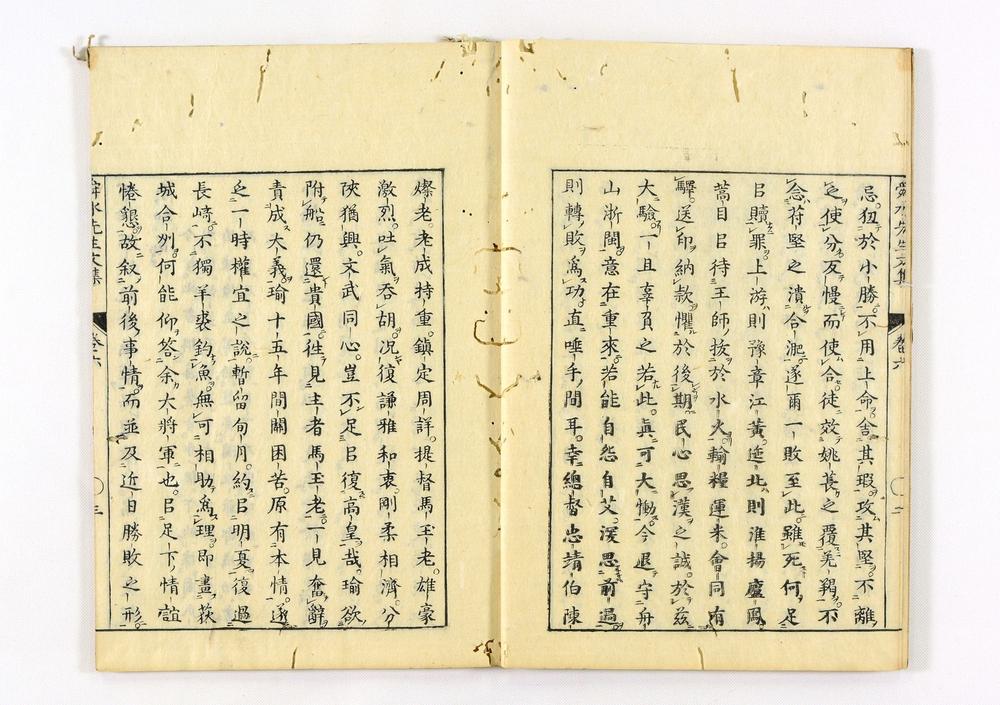 忌。狃於小勝。不用上命。舍其瑕。攻其堅。不離
之使分。反慢而使合。徒效姚萇之覆羌羯。不
念苻堅之潰合淝。遂爾一敗至此。雖死何足
㠯贖罪。上游則豫章江黃。迤北則淮揚廬鳳。
蒿目㠯待王師。拔於水火。輸糧運米。會同有
驛。送印納款。懼於後期。民心思漢之誠。於茲
大驗。一旦辜負之若此。眞可大慟。今退守舟
山浙閩。意在重來。若能自怨自艾。湲思前過。
則轉敗爲功。直唾手間耳。幸總督忠靖伯陳
燦老。老成持重。鎭定周詳。提督馬玉老。雄豪
激烈。吐氣吞胡。况復謙雅和衷。剛柔相濟。分
陝猶興。文武同心。豈不足㠯復高皇哉。瑜欲
附船仍還貴國。徃見主者馬玉老。一見奮辭
責成大義。瑜十五年間關困苦。原有本情。遂
之一時權宜之說。暫留旬月。約㠯明憂復過
長崎。不獨羊裘釣魚。無可相助爲理。即畫荻
城合刎。何能仰答余大將軍也。㠯足下情誼
惓懇。故叙前後事情。而並及近日勝敗之形。
舜水先生文集
卷六